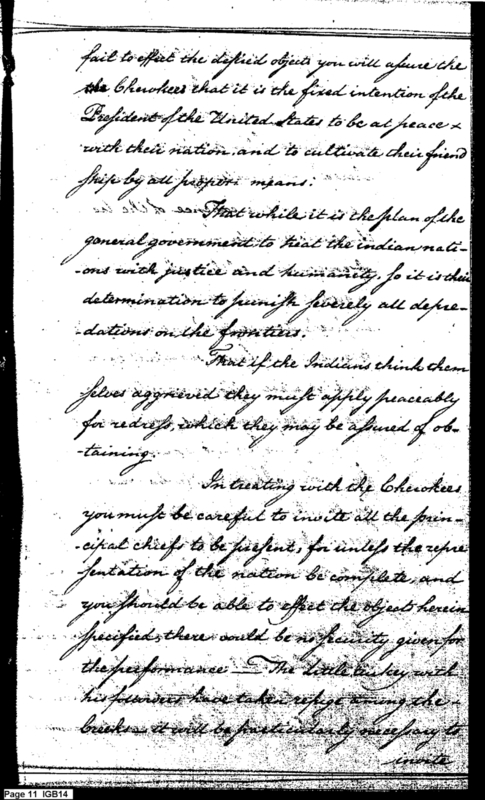 fail to effect the desired objects you will assure the
the Cherokees that it is the fixed intention of the
President of the United States to be at peace
with their nation, and to cultivate their friend
ship by all proper means.
That while it is the plan of the
general government to treat the indian nati-
-ons with justice and humanity, so it is their
determination to punish severely all depre-
-dations on the frontiers.
That if the Indians think them
selves aggrieved they must apply peaceably
for redress, which they may be assured of ob-
-taining.
In treating with the Cherokees
you must be careful to invite all the prin-
-cipal chiefs to be present, for unless the repre
sentation of the nation be complete, and
you should be able to effect the objects herein
specified, there would be no security given for
the performance — The little turkey with
his followers have taken refuge among the
Creeks — it will be particularly necessary to
invite
Page 11 IGB14